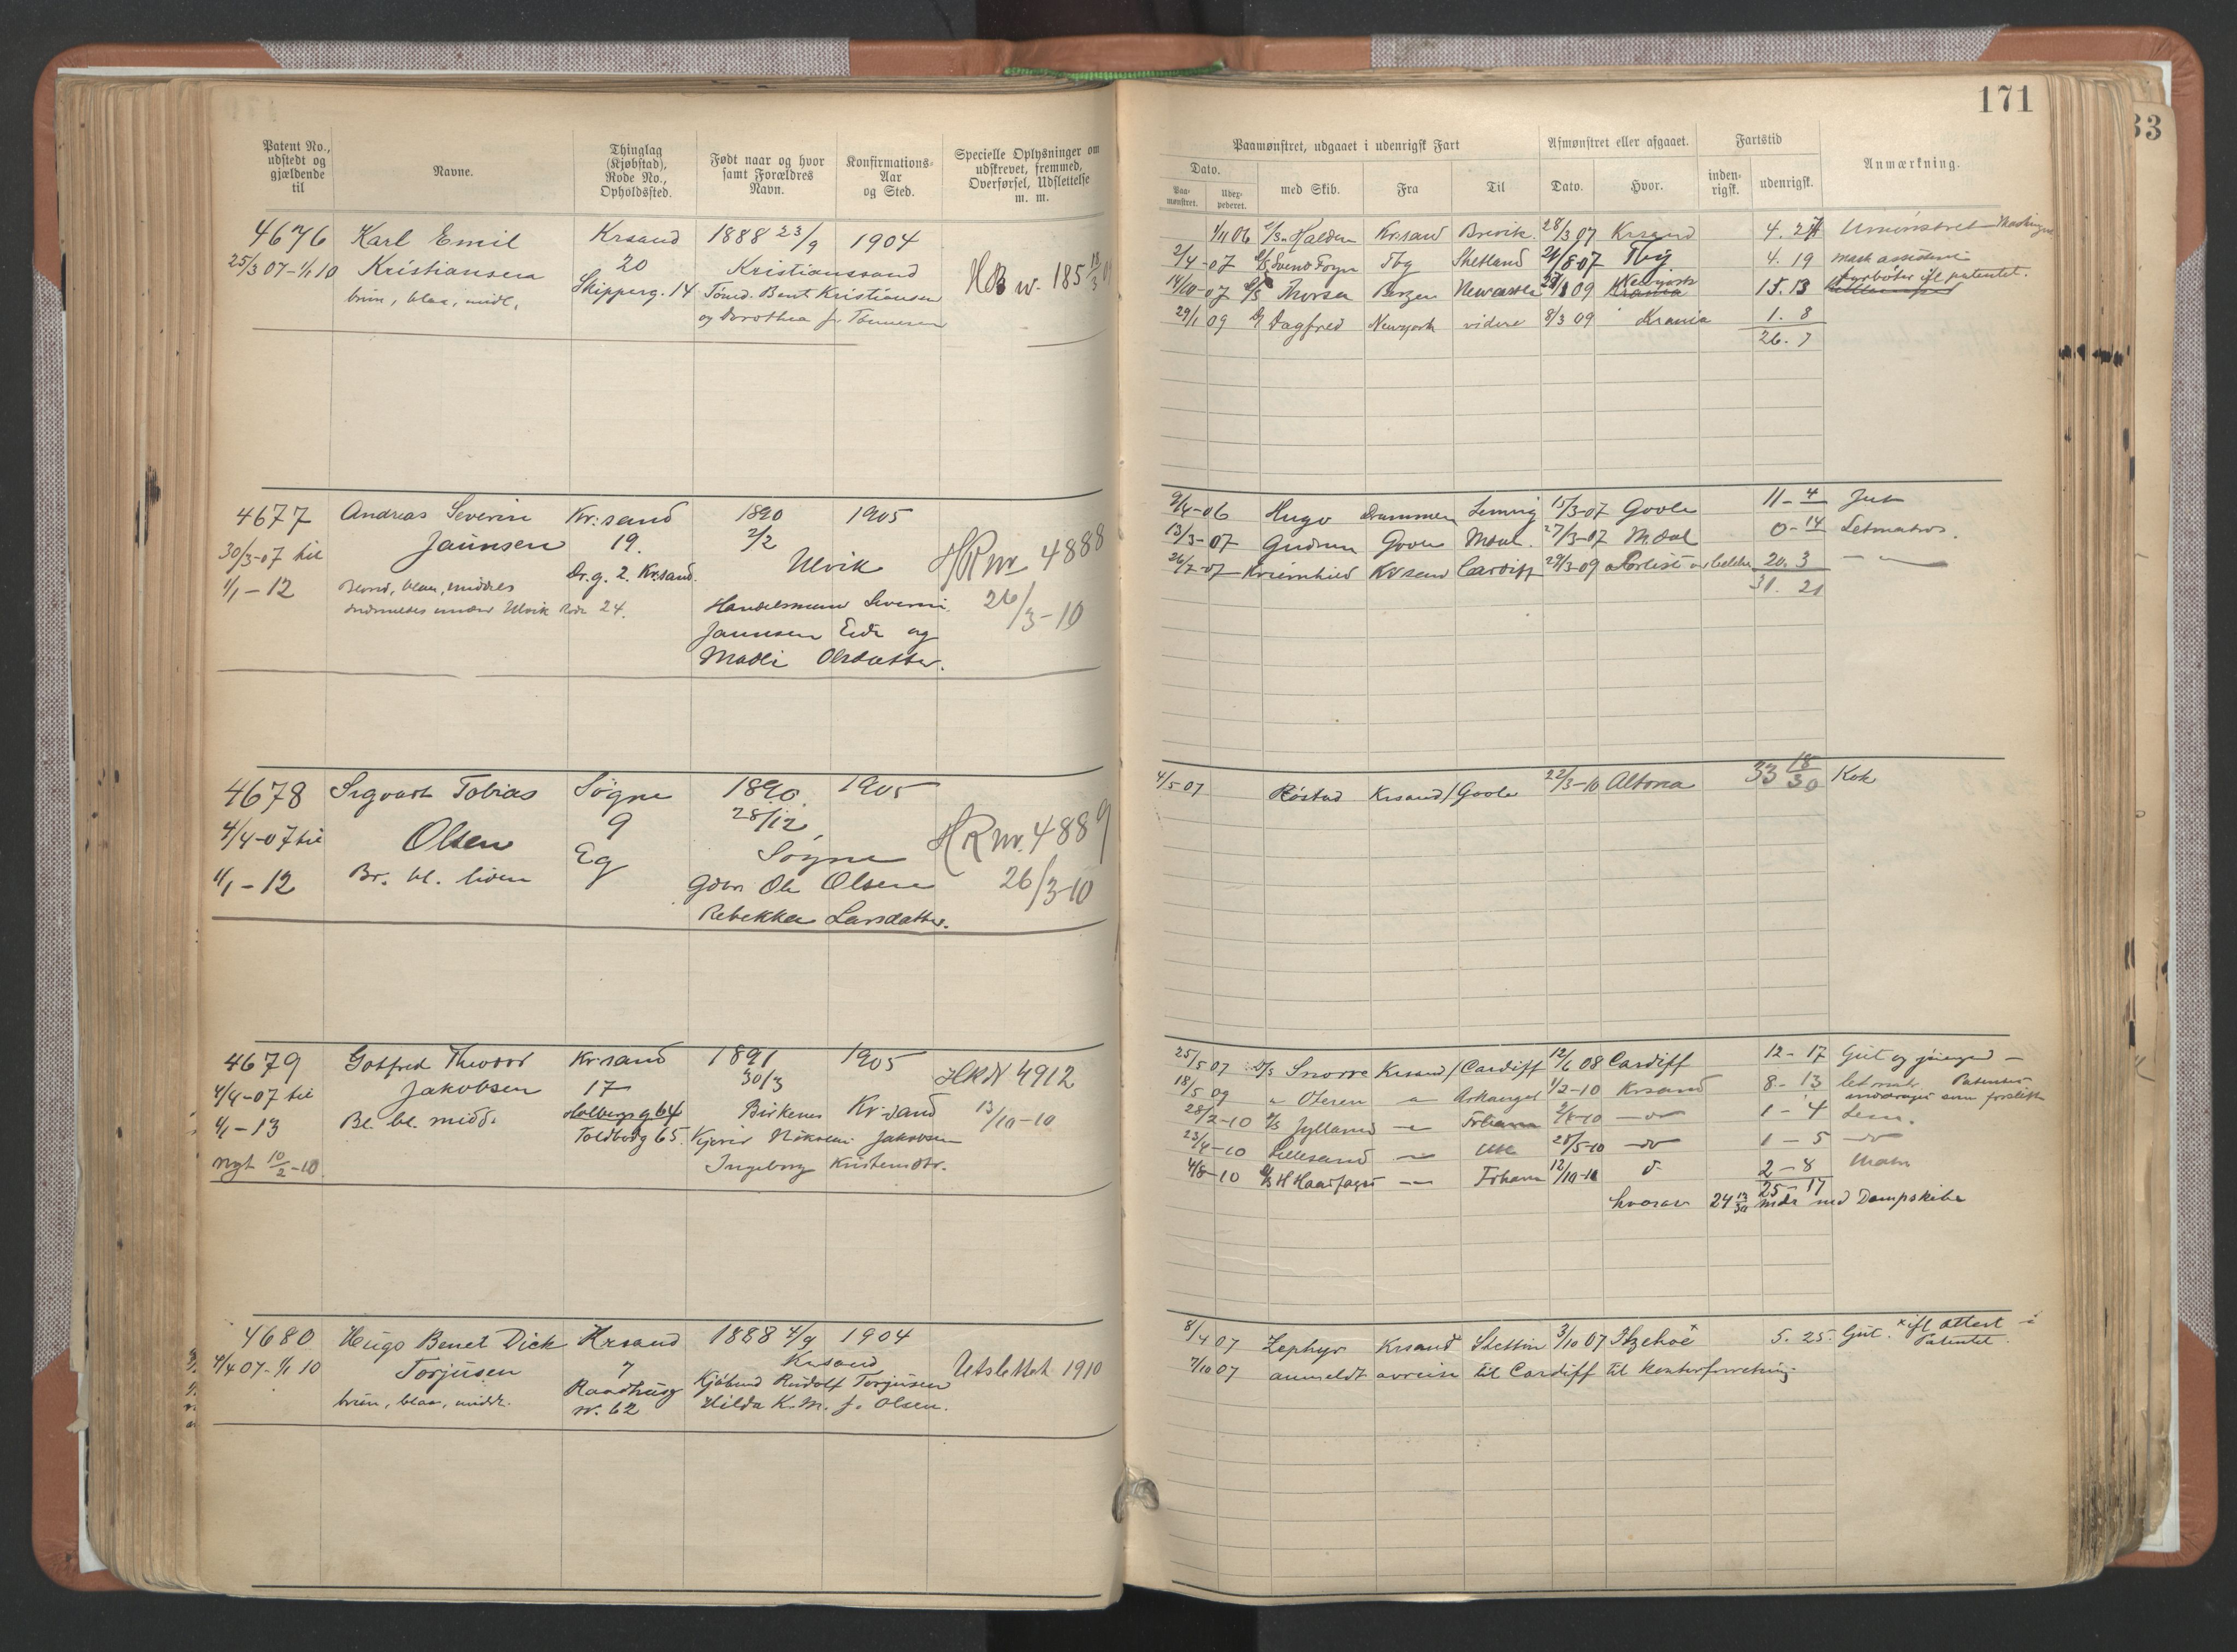 171
33
Patent No., udstedt og gjældende til
Navne.
Thinglag (Kjøbstad), Rode No., Opholdssted.
Født naar og hvor samt Forældres Navn.
Konfirmations-Aar og Sted.
Specielle Oplysninger om udskrevet, fremmed, Overførsel, Udslettelse m. m.
Paamønstret, udgaaet i udenrigsk Fart
Afmønstret eller afgaaet.
Fartstid
Anmærkning.
Dato.
Paa-mønstret.
Udex-pederet.
med Skib.
Fra
Til
Dato.
Hvor.
inden-rigsk.
udenrigsk.
4676 Karl Emil Krsand 1888 23/9 1904
25/3 07-1/1 10 Kristiansen 20 Kristianssand
brun, blaa, midl. Skipperg. 14 Tømd. Bent Kristiansen
og Dorothea f. Tønnesen
HB nr. 185 13/3 09
1/11 06 Halden Kr.sand Brevik 28/3 07 Krsand 4. 27
2/4-07 Svend Foyn Tbg Shetland 21/8 07 Tbg 4. 19 mask assistent
14/10-07 Thorsa Bergen Newcastle Newyork 15. 13 fyrbøter ifl patentet.
29/1 09 Dagfred Newyork videre 8/3 09 Krania 1. 8
26. 7
4677 Andreas Severin Kr:sand 1890 1905
30/3-07 til Jaunsen 19. 2/2
1/1-12 Blond, blaa, middels Dr.g. 2. Kr.sand. Ulvik
Ulvik Rode 24.
Handelsmand Severin
Jaunsen Eide og
Madli Olsdatter.
HR nr 4888
26/3-10
9/4-06 Hugo Drammen Lemvig 15/3-07 Goole 11-4 Jun
13/3-07 Gudrun Goole Mdal. 27/3-07 M.dal 0-14 Letmatros.
26/7-07 Kriemhild Kr sand Cardiff 29/3-09 20. 3
31. 21
4678 Sigvart Tobias Søgne 1890 1905
4/4-07 til Olsen 9 28/12
1/1-12 Br. bl. liden Eg Søgne
Gdbr Ole Olsen
Rebekka Larsdatter.
HR nr. 4889
26/3-10
4/5 07 Røstad Krsand/Goole 22/3-10 Altona 33 18/30 Kok
4679 Gotfred Theodor Kr:sand 1891 1905
4/4-07 til Jakobsen 17 30/3
1/1-13 Bl. bl. midd. Holbergs g 64 Birkenes Kr.sand
Toldbodg 65.
Nyt 10/2-10 Ingeborg Kristensdtr.
HR N 4912
13/10-10
25/5 07 D/S Snorre Krsand/Cardiff 12/6 08 Cardiff 12-17 Gut og
18/5 09 Oteren Arkangel 1/2-10 Krsand 8-13
28/2-10 D/S Jylland 2/4-10 1-4
23/4-10 Lillesand 28/5-10 1-5
4/8-10 D/S H Haarfagre Frhavn 12/10-10 2-8 Matr
25-17
hvorav 24 13/30 mdr med Dampskibe
4680 Hugo Benet Dick Krsand 1888 4/9 1904
4/4 07-1/1 10 Torjusen 7 Krsand
brun, blaa, midd. Raadhusg nr. 62 Kjøbmd Rudolf Torjusen
Hilda K. M. f. Olsen.
Utslettet 1910
8/4 07 Zephyr Krsand Stettin 3/10 07 Itzehoe× 5. 25. Gut. ×ifl attest i Patentet.
7/10 07 anmeldt avreise til Cardiff til Kontorforretning